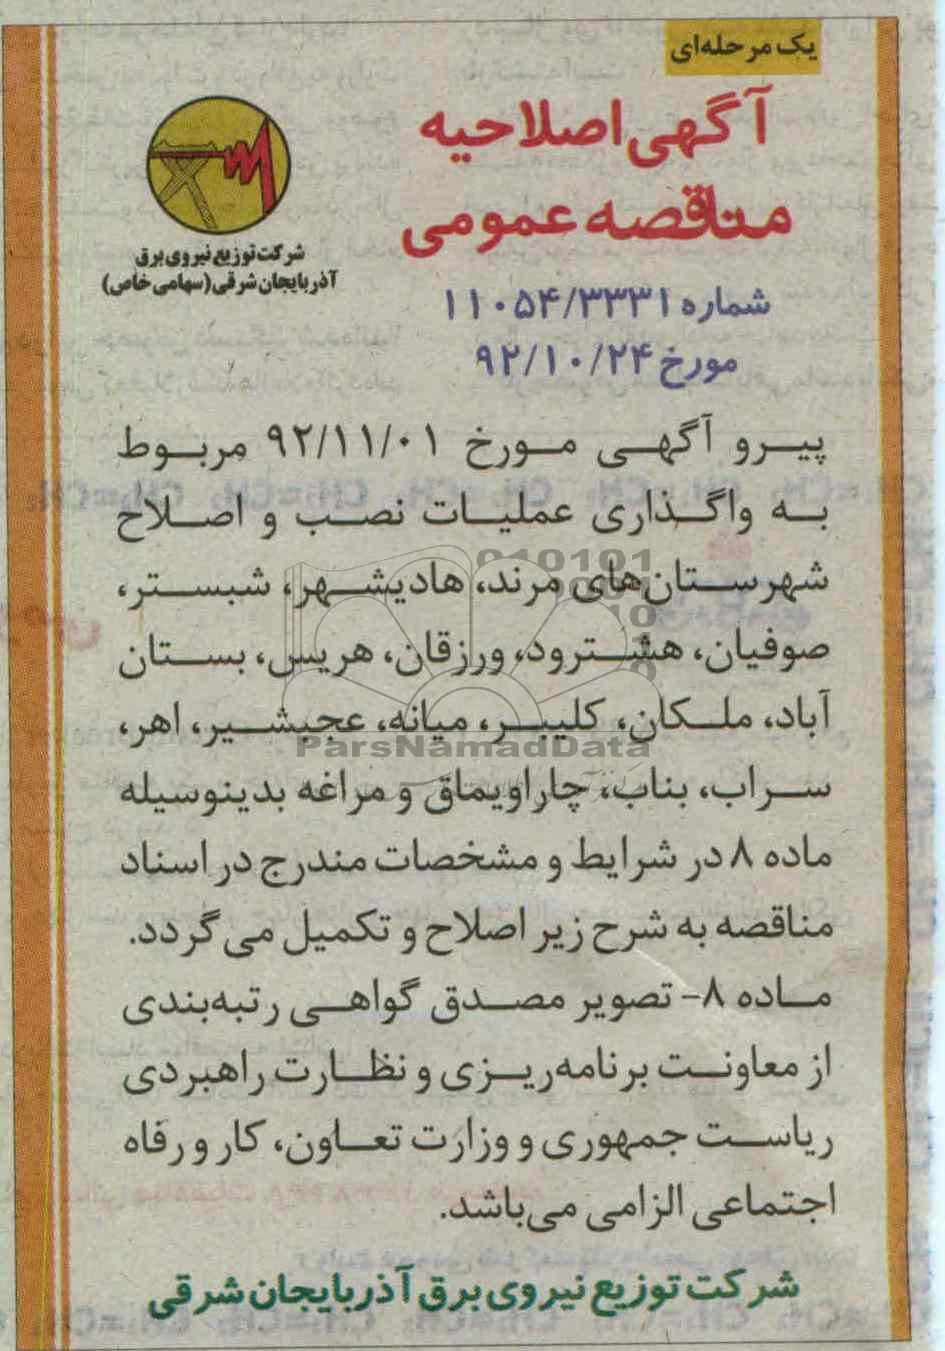 یک مرحله‌ای
آگهی اصلاحیه
مناقصه عمومی
شرکت توزیع نیروی برق
آذربایجان شرقی (سهامی خاص)
شماره ۱۱۰۵۴/۳۳۳۱
مورخ ۹۲/۱۰/۲۴
پیرو آگهی مورخ ۹۲/۱۱/۰۱ مربوط
به واگذاری عملیات نصب و اصلاح
شهرستان‌های مرند، هادیشهر، شبستر،
صوفیان، هشترود، ورزقان، هریس، بستان
آباد، ملکان، کلیبر، میانه، عجبشیر، اهر،
ParsNamadData
سراب، بناب، چاراویماق و مراغه بدینوسیله
ماده ۸ در شرایط و مشخصات مندرج در اسناد
مناقصه به شرح زیر اصلاح و تکمیل می گردد.
ماده ۸- تصویر مصدق گواهی رتبه‌بندی
از معاونت برنامه‌ریزی و نظارت راهبردی
ریاست جمهوری و وزارت تعاون، کار و رفاه
اجتماعی الزامی می‌باشد.
شرکت توزیع نیروی برق آذربایجان شرقی